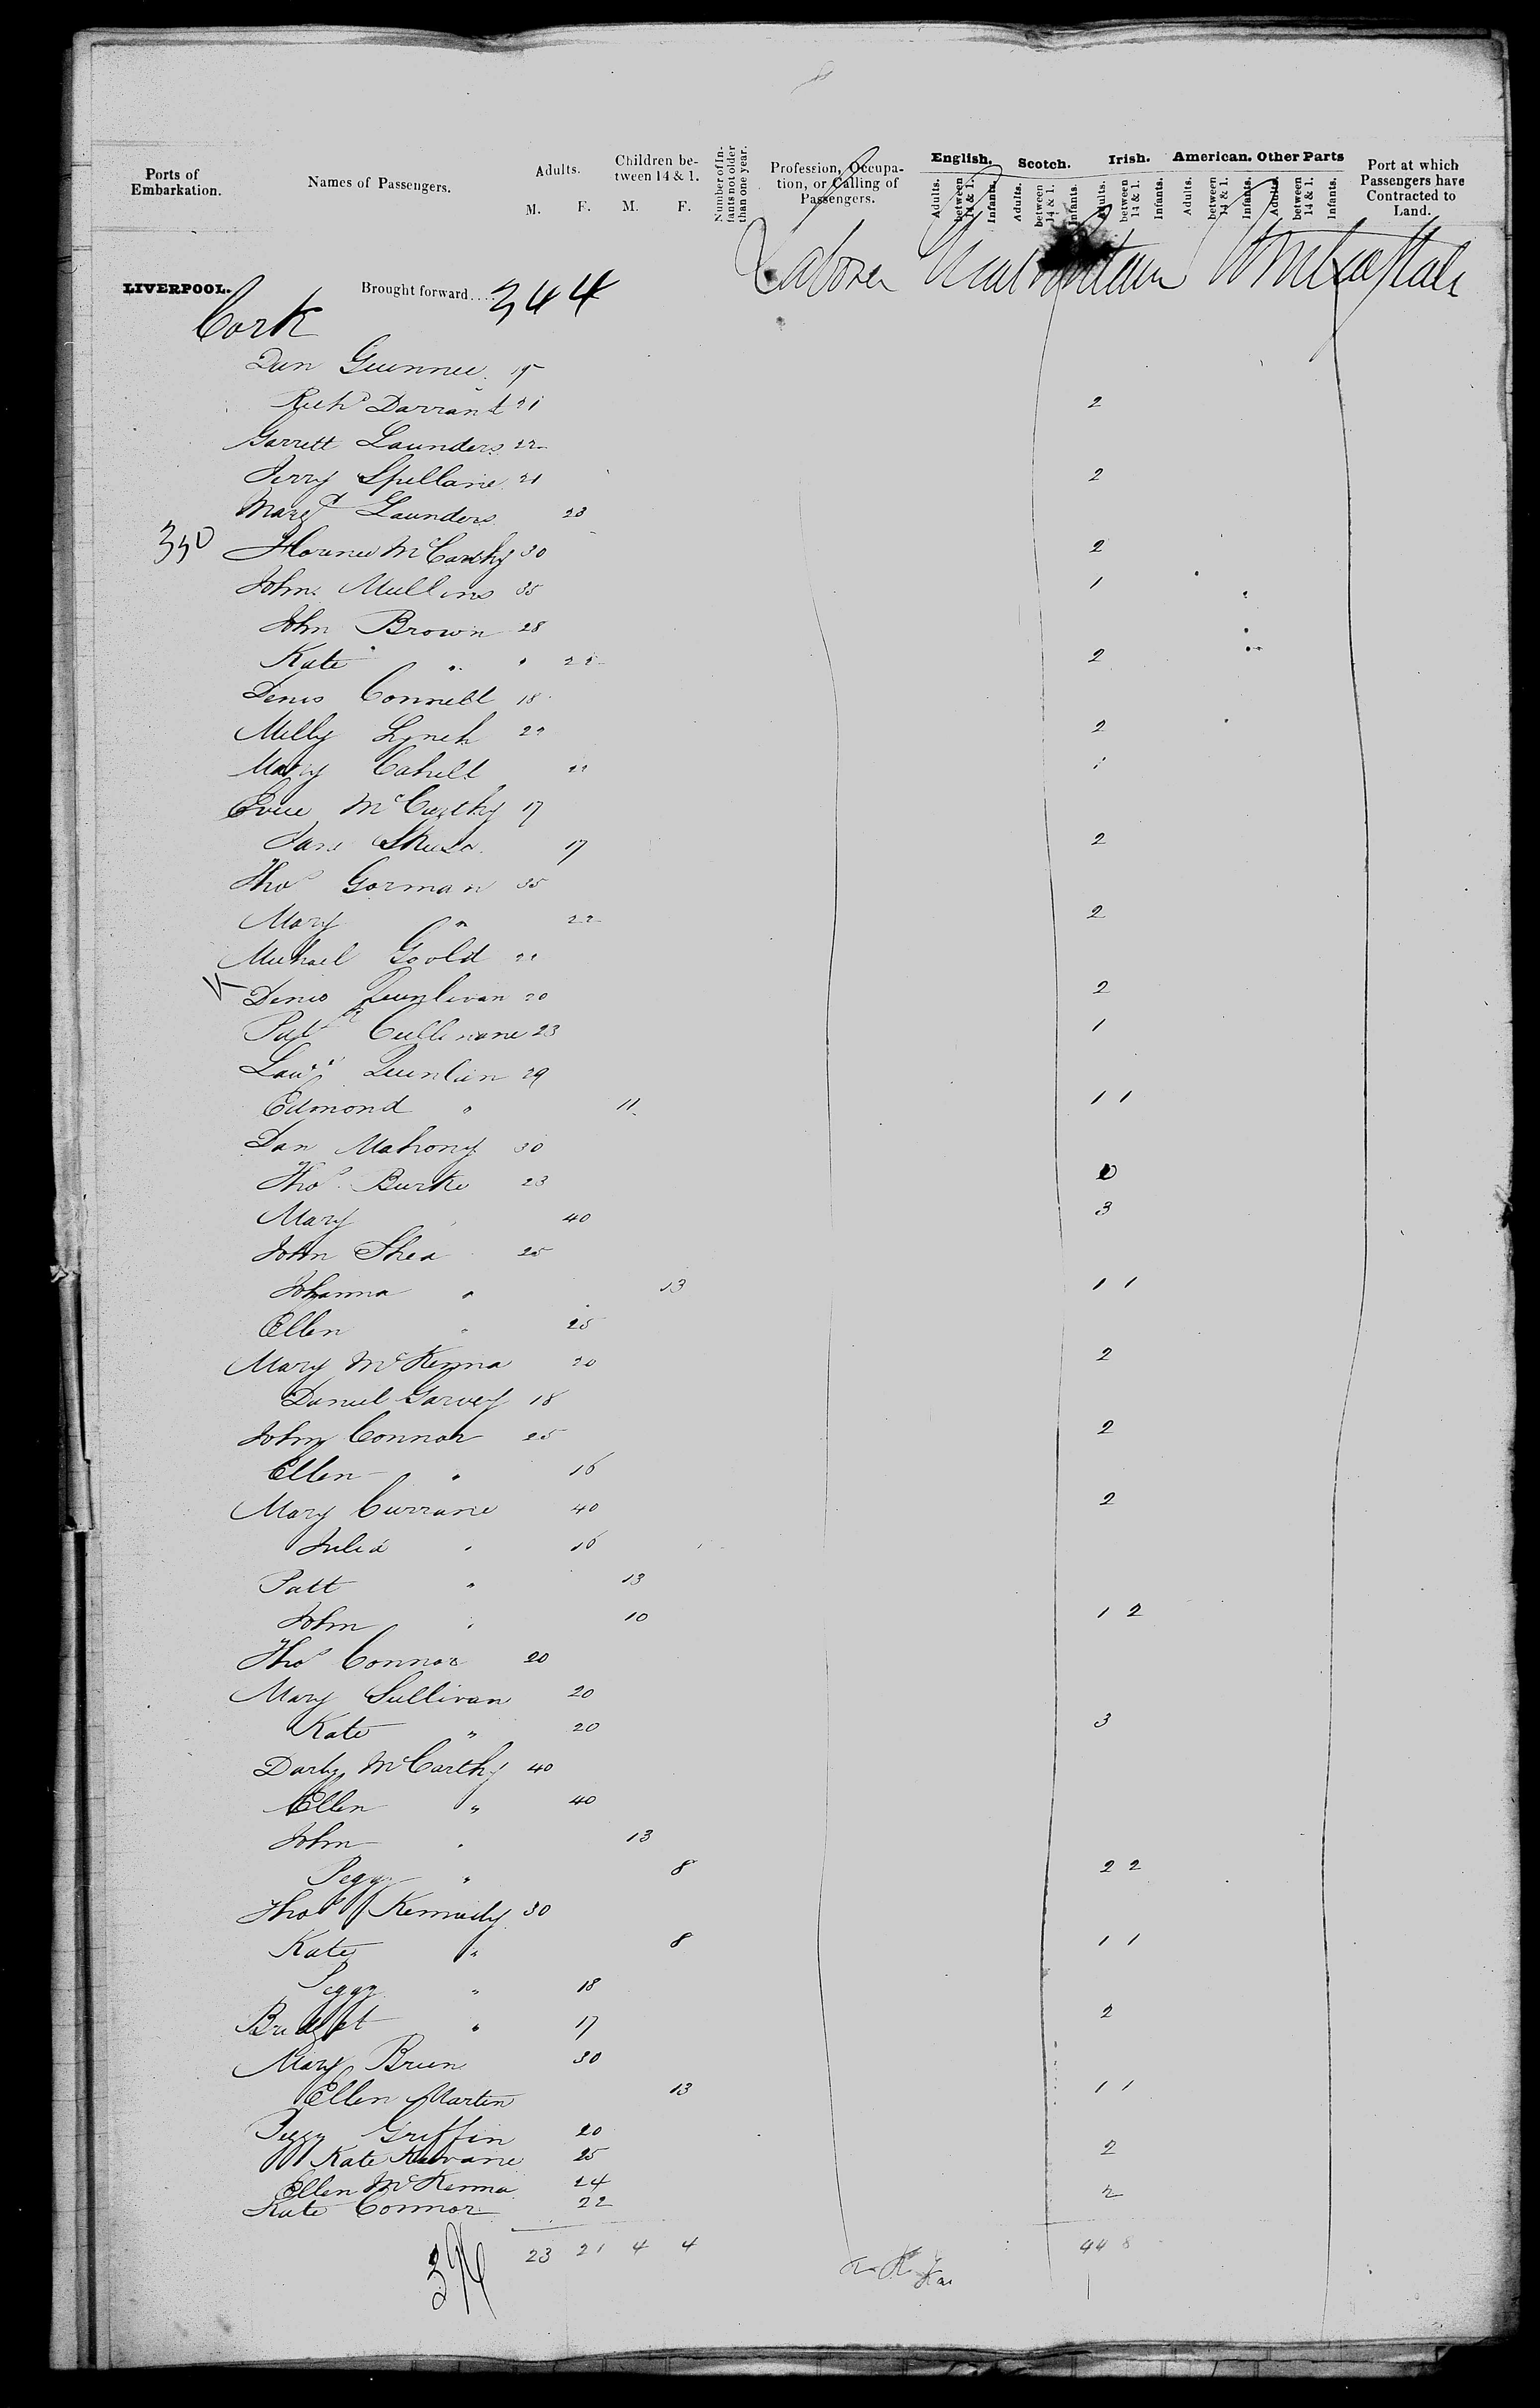 Ports of Embarkation. Names of Passengers. Adults. M. F. Children between 14 & 1. M. F. Number of Infants not older than one year. Profession, Occupation, or Calling of Passengers. English. Adults. between 14 & 1. Infants. Scotch. Adults. between 14 & 1. Infants. Irish. Adults. between 14 & 1. Infants. American. Adults. between 14 & 1. Infants. Other Parts Adults. between 14 & 1. Infants. Port at which Passengers have Contracted to Land.
LIVERPOOL. Brought forward.... 344 Labourer
Cork
Dan Guinnee 19
Richd Darrant 21 2
Garrett Launders 22
Jerry Spellane 21 2
Margt Launders 23
350 Florence McCarthy 30 2
John Mullins 35 1
John Brown 28
Kate " 22 2
Denis Connell 18
Milly Lynch 22 2
Mary Cahill 22
McCarthy 17
Jane 17 2
Thos Gorman 35
Mary " 22 2
Michael Goold 21
Denis Quinlivan 20 2
Patk Cullinane 23 1
Lawr Quinlan 29
Edmond " 11 1 1
Dan Mahony 30
Thos Burke 23
Mary " 40 3
John Shea 25
Johanna " 13 1 1
Ellen " 25
Mary McKenna 20 2
Daniel Garvey 18
John Connor 25 2
Ellen " 16
Mary Currane 40 2
Julia " 16
Patt " 13
John " 10 1 2
Thos Connor 20
Mary Sullivan 20
Kate " 20 3
Darby McCarthy 40
Ellen " 40
John " 13
Peggy " 8 2 2
Thos Kennedy 30
Kate " 8 1 1
Peggy " 18
Bridget " 17 2
Mary Brien 30
Ellen Martin 13 1 1
Peggy Griffin 20
Kate 25 2
Ellen McKenna 24
Kate Connor 22 2
23 21 4 4 44 8
396